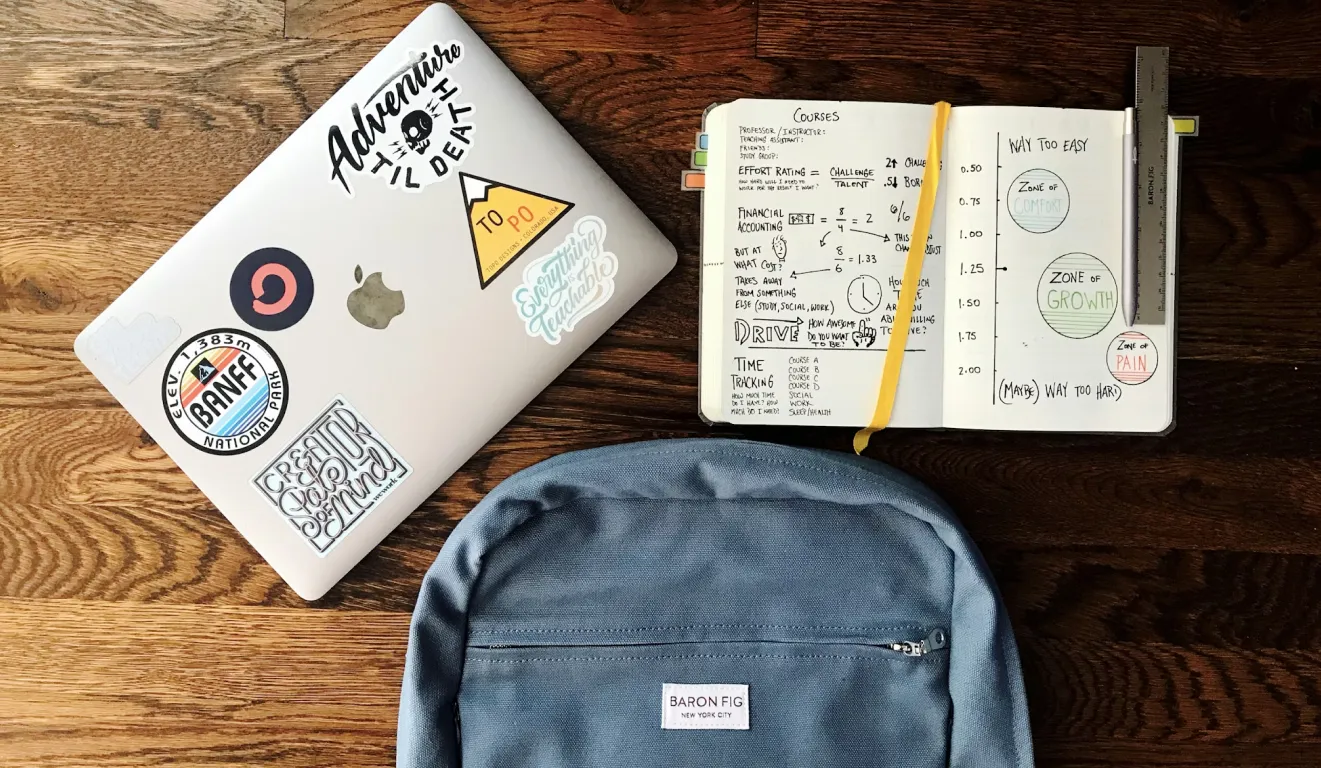 Adventure
TIL DEATH
TO PO
TOPO DESIGNS • COLORADO, USA
Everything
Teachable
ELEV. 1,383m
BANFF
NATIONAL PARK
CREATOR
Pals
OF Mind
wework
COURSES
PROFESSOR / INSTRUCTOR:
TEACHING ASSISTANT:
FRIENDS:
STUDY GROUP:
EFFORT RATING = CHALLENGE
TALENT
HOW HARD WILL I NEED TO
WORK FOR THE RESULT I WANT?
2↑
.5↓
FINANCIAL
ACCOUNTING = 8
4 = 2
6/6
BUT AT
WHAT COST?
8
6 = 1.33
TAKES AWAY
FROM SOMETHING
ELSE (STUDY, SOCIAL, WORK)
DRIVE
HOW AWESOME
DO YOU WANT
TO BE?
TIME
TRACKING
HOW MUCH TIME
DO I HAVE? HOW
MUCH DO I NEED?
COURSE A
COURSE B
COURSE C
COURSE D
SOCIAL
WORK
SLEEP/HEALTH
WAY TOO EASY
0.50
0.75
1.00
1.25
1.50
1.75
2.00
ZONE OF
COMFORT
ZONE OF
GROWTH
ZONE OF
PAIN
(MAYBE) WAY TOO HARD
BARON FIG
BARON FIG
NEW YORK CITY